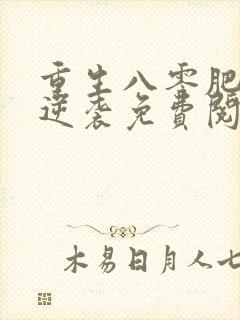 重生八零肥
逆袭免费阅
木易日月人七